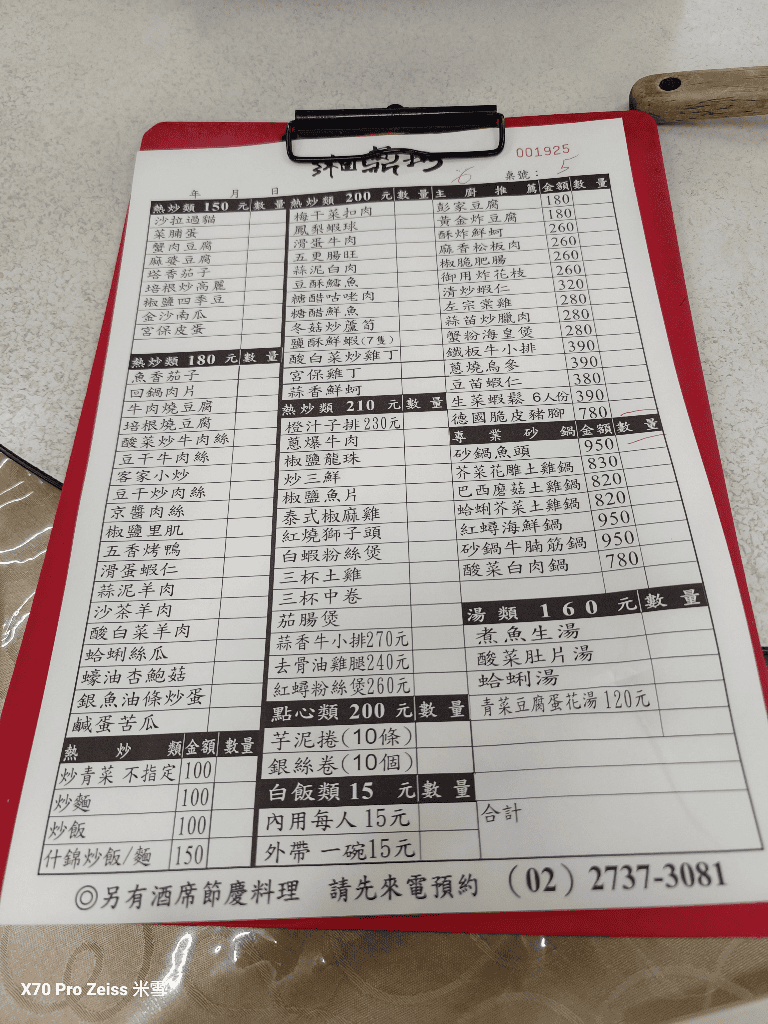 湘鼎坊
001925
年 月 日
桌號： 5
6
熱炒類 150 元 數量
沙拉過貓
菜脯蛋
蟹肉豆腐
麻婆豆腐
塔香茄子
培根炒高麗
椒鹽四季豆
金沙南瓜
宮保皮蛋
熱炒類 180 元 數量
魚香茄子
回鍋肉片
牛肉燒豆腐
培根燒豆腐
酸菜炒牛肉絲
豆干牛肉絲
客家小炒
豆干炒肉絲
京醬肉絲
椒鹽里肌
五香烤鴨
滑蛋蝦仁
蒜泥羊肉
沙茶羊肉
酸白菜羊肉
蛤蜊絲瓜
蠔油杏鮑菇
銀魚油條炒蛋
鹹蛋苦瓜
熱炒類 金額 數量
炒青菜 不指定 100
炒麵 100
炒飯 100
什錦炒飯/麵 150
熱炒類 200 元 數量
梅干菜扣肉
鳳梨蝦球
滑蛋牛肉
五更腸旺
蒜泥白肉
豆酥鱈魚
糖醋咕咾肉
糖醋鮮魚
冬菇炒蘆筍
鹽酥鮮蝦(7隻)
酸白菜炒雞丁
宮保雞丁
蒜香鮮蚵
熱炒類 210 元 數量
橙汁子排230元
蔥爆牛肉
椒鹽龍珠
炒三鮮
椒鹽魚片
泰式椒麻雞
紅燒獅子頭
白蝦粉絲煲
三杯土雞
三杯中卷
茄腸煲
蒜香牛小排270元
去骨油雞腿240元
紅蟳粉絲煲260元
點心類 200 元 數量
芋泥捲(10條)
銀絲卷(10個)
白飯類 15 元 數量
內用每人 15元
外帶 一碗15元
主廚推薦 金額 數量
彭家豆腐 180
黃金炸豆腐 180
酥炸鮮蚵 260
麻香松板肉 260
椒脆肥腸 260
御用炸花枝 260
清炒蝦仁 320
左宗棠雞 280
蒜苗炒臘肉 280
蟹粉海皇煲 280
鐵板牛小排 390
蔥燒烏參 390
豆苗蝦仁 380
生菜蝦鬆 6人份 390
德國脆皮豬腳 780
專業砂鍋 金額 數量
砂鍋魚頭 950
芥菜花雕土雞鍋 830
巴西蘑菇土雞鍋 820
蛤蜊芥菜土雞鍋 820
紅蟳海鮮鍋 950
砂鍋牛腩筋鍋 950
酸菜白肉鍋 780
湯類 160 元 數量
煮魚生湯
酸菜肚片湯
蛤蜊湯
青菜豆腐蛋花湯 120元
合計
◎另有酒席節慶料理 請先來電預約 (02) 2737-3081
X70 Pro Zeiss 米雪